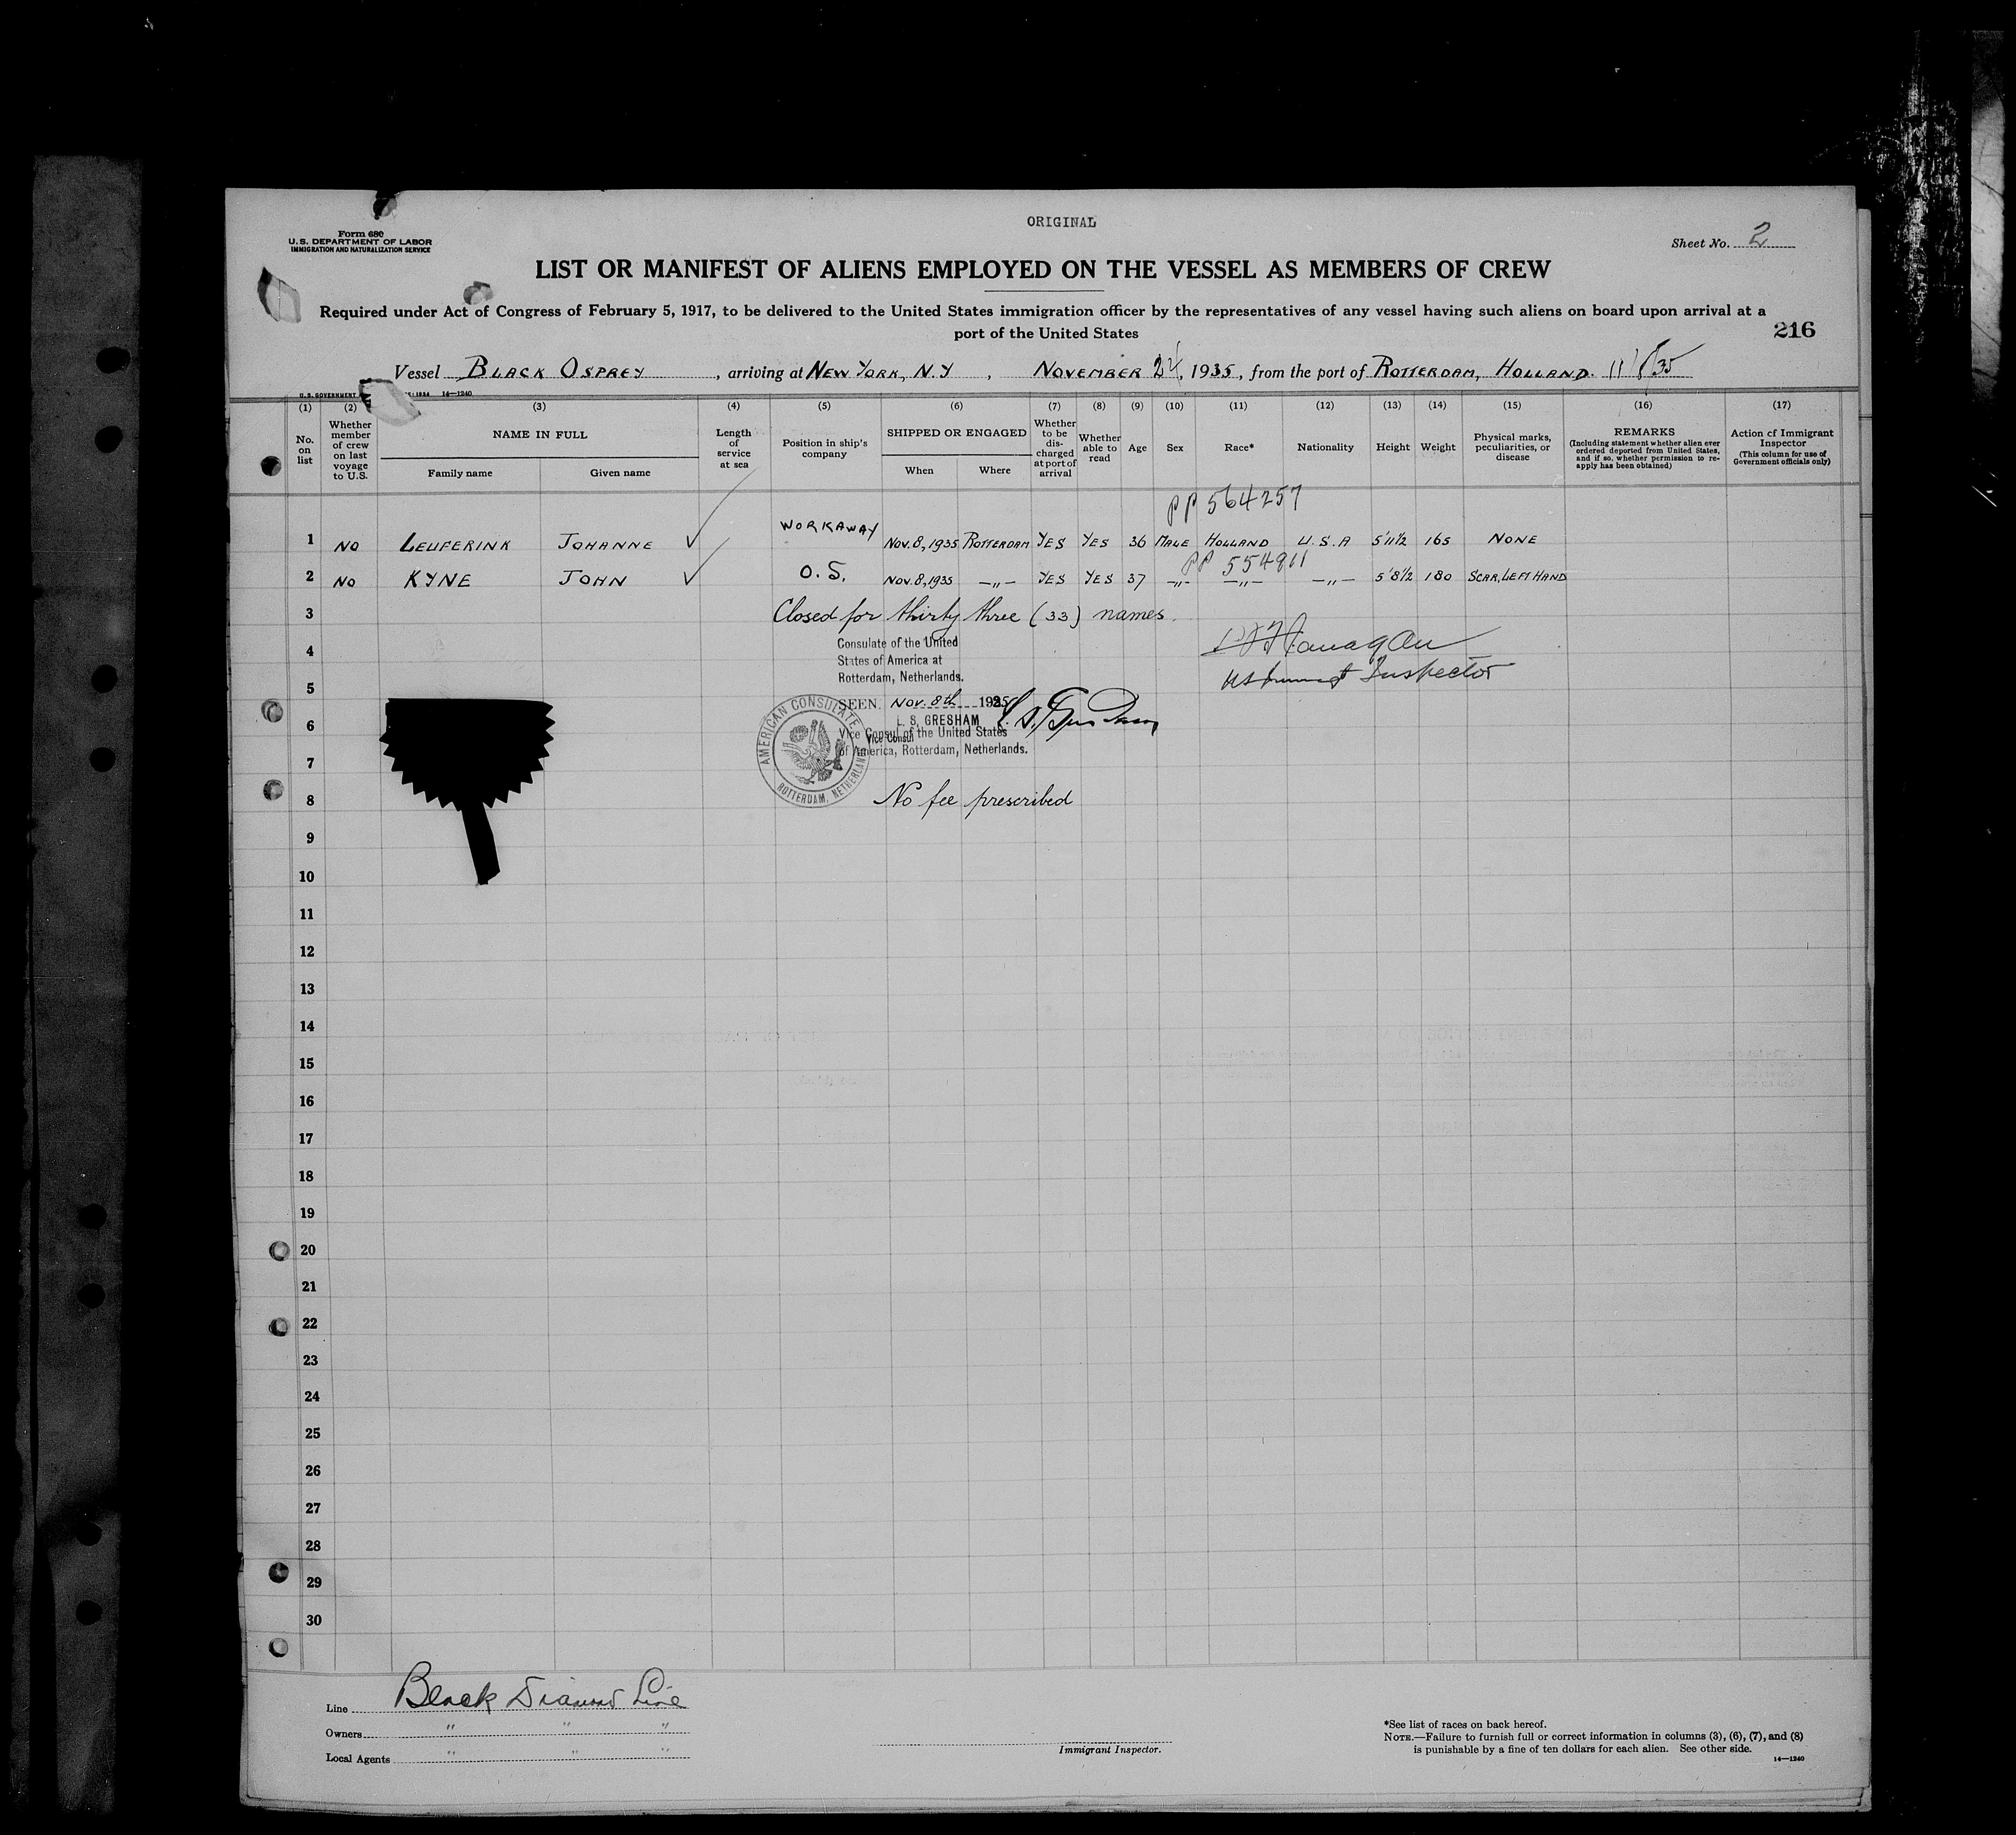 ORIGINAL
Form 680
U. S. DEPARTMENT OF LABOR
IMMIGRATION AND NATURALIZATION SERVICE
Sheet No. 2
LIST OR MANIFEST OF ALIENS EMPLOYED ON THE VESSEL AS MEMBERS OF CREW
Required under Act of Congress of February 5, 1917, to be delivered to the United States immigration officer by the representatives of any vessel having such aliens on board upon arrival at a
port of the United States
216
Vessel BLACK OSPREY , arriving at NEW YORK, N.Y , NOVEMBER 24, 1935, from the port of ROTTERDAM, HOLLAND. 11/8/35
U. S. GOVERNMENT 14—1240
(1) (2) (3) (4) (5) (6) (7) (8) (9) (10) (11) (12) (13) (14) (15) (16) (17)
No. on list
Whether member of crew on last voyage to U.S.
NAME IN FULL
Family name Given name
Length of service at sea
Position in ship's company
SHIPPED OR ENGAGED
When Where
Whether to be discharged at port of arrival
Whether able to read
Age
Sex
Race*
Nationality
Height
Weight
Physical marks, peculiarities, or disease
REMARKS
(Including statement whether alien ever ordered deported from United States, and if so, whether permission to reapply has been obtained)
Action of Immigrant Inspector
(This column for use of Government officials only)
PP 564257
1 NO LEUFERINK JOHANNE ✓ WORKAWAY NOV. 8, 1935 ROTTERDAM YES YES 36 MALE HOLLAND U.S.A 5'11½ 165 NONE
PP 554911
2 NO KYNE JOHN ✓ O.S. NOV. 8, 1935 —〃— YES YES 37 —〃— —〃— —〃— 5'8½ 180 SCAR, LEFT HAND
3 Closed for thirty three (33) names.
Consulate of the United
4 States of America at
Rotterdam, Netherlands.
Inspector
5
SEEN. Nov. 8th 1935
L. S. GRESHAM
6 Vice Consul of the United States
Vice Consul
of America, Rotterdam, Netherlands.
AMERICAN CONSULATE
ROTTERDAM, NETHERLANDS
7
8 No fee prescribed
9
10
11
12
13
14
15
16
17
18
19
20
21
22
23
24
25
26
27
28
29
30
Line Black Diamond Line
Owners " " "
Local Agents " " "
Immigrant Inspector.
*See list of races on back hereof.
NOTE.—Failure to furnish full or correct information in columns (3), (6), (7), and (8)
is punishable by a fine of ten dollars for each alien. See other side.
14—1240